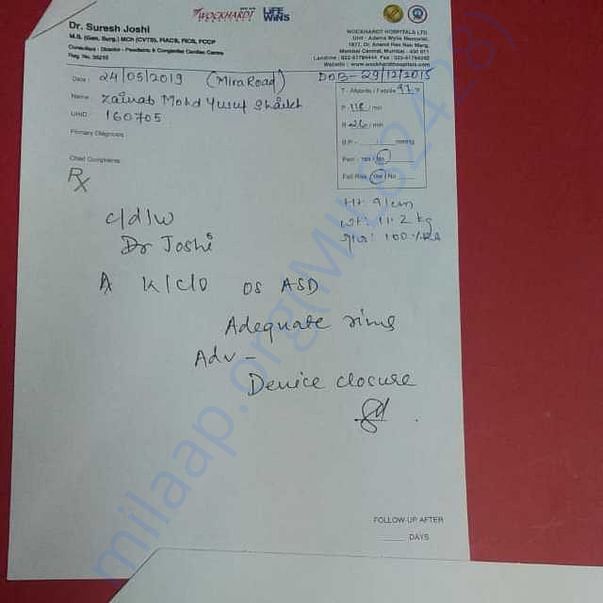 WOCKHARDT LIFE WINS
Dr. Suresh Joshi
M.S. (Gen. Surg.) MCh (CVTS), FIACS, FICS, FCCP
Consultant - Director - Paediatric & Congenital Cardiac Centre
Reg. No. 35215
WOCKHARDT HOSPITALS LTD
Unit : Adams Wylie Memorial,
1877, Dr. Anand Rao Nair Marg,
Mumbai Central, Mumbai - 400 011
Website : www.wockhardthospitals.com
Date : 24/05/2019 (Mira Road) DOB - 29/12/2015
Name : Zainab Mohd Yusuf Shaikh
UHID : 160705
Primary Diagnosis
Chief Complaints :
T - Afebrile / Febrile
P 118 / min
R 26 / min
B.P mmHg
Pain - Yes / No
Fall Risk Yes / No
Rx
Ht 91cm
wt: 11.2 kg
100 % RA
c/d/w
Dr Joshi
A k/c/o OS ASD
Adequate rims
Adv -
Device closure
FOLLOW-UP AFTER
DAYS
milaap.org(MIL82428)